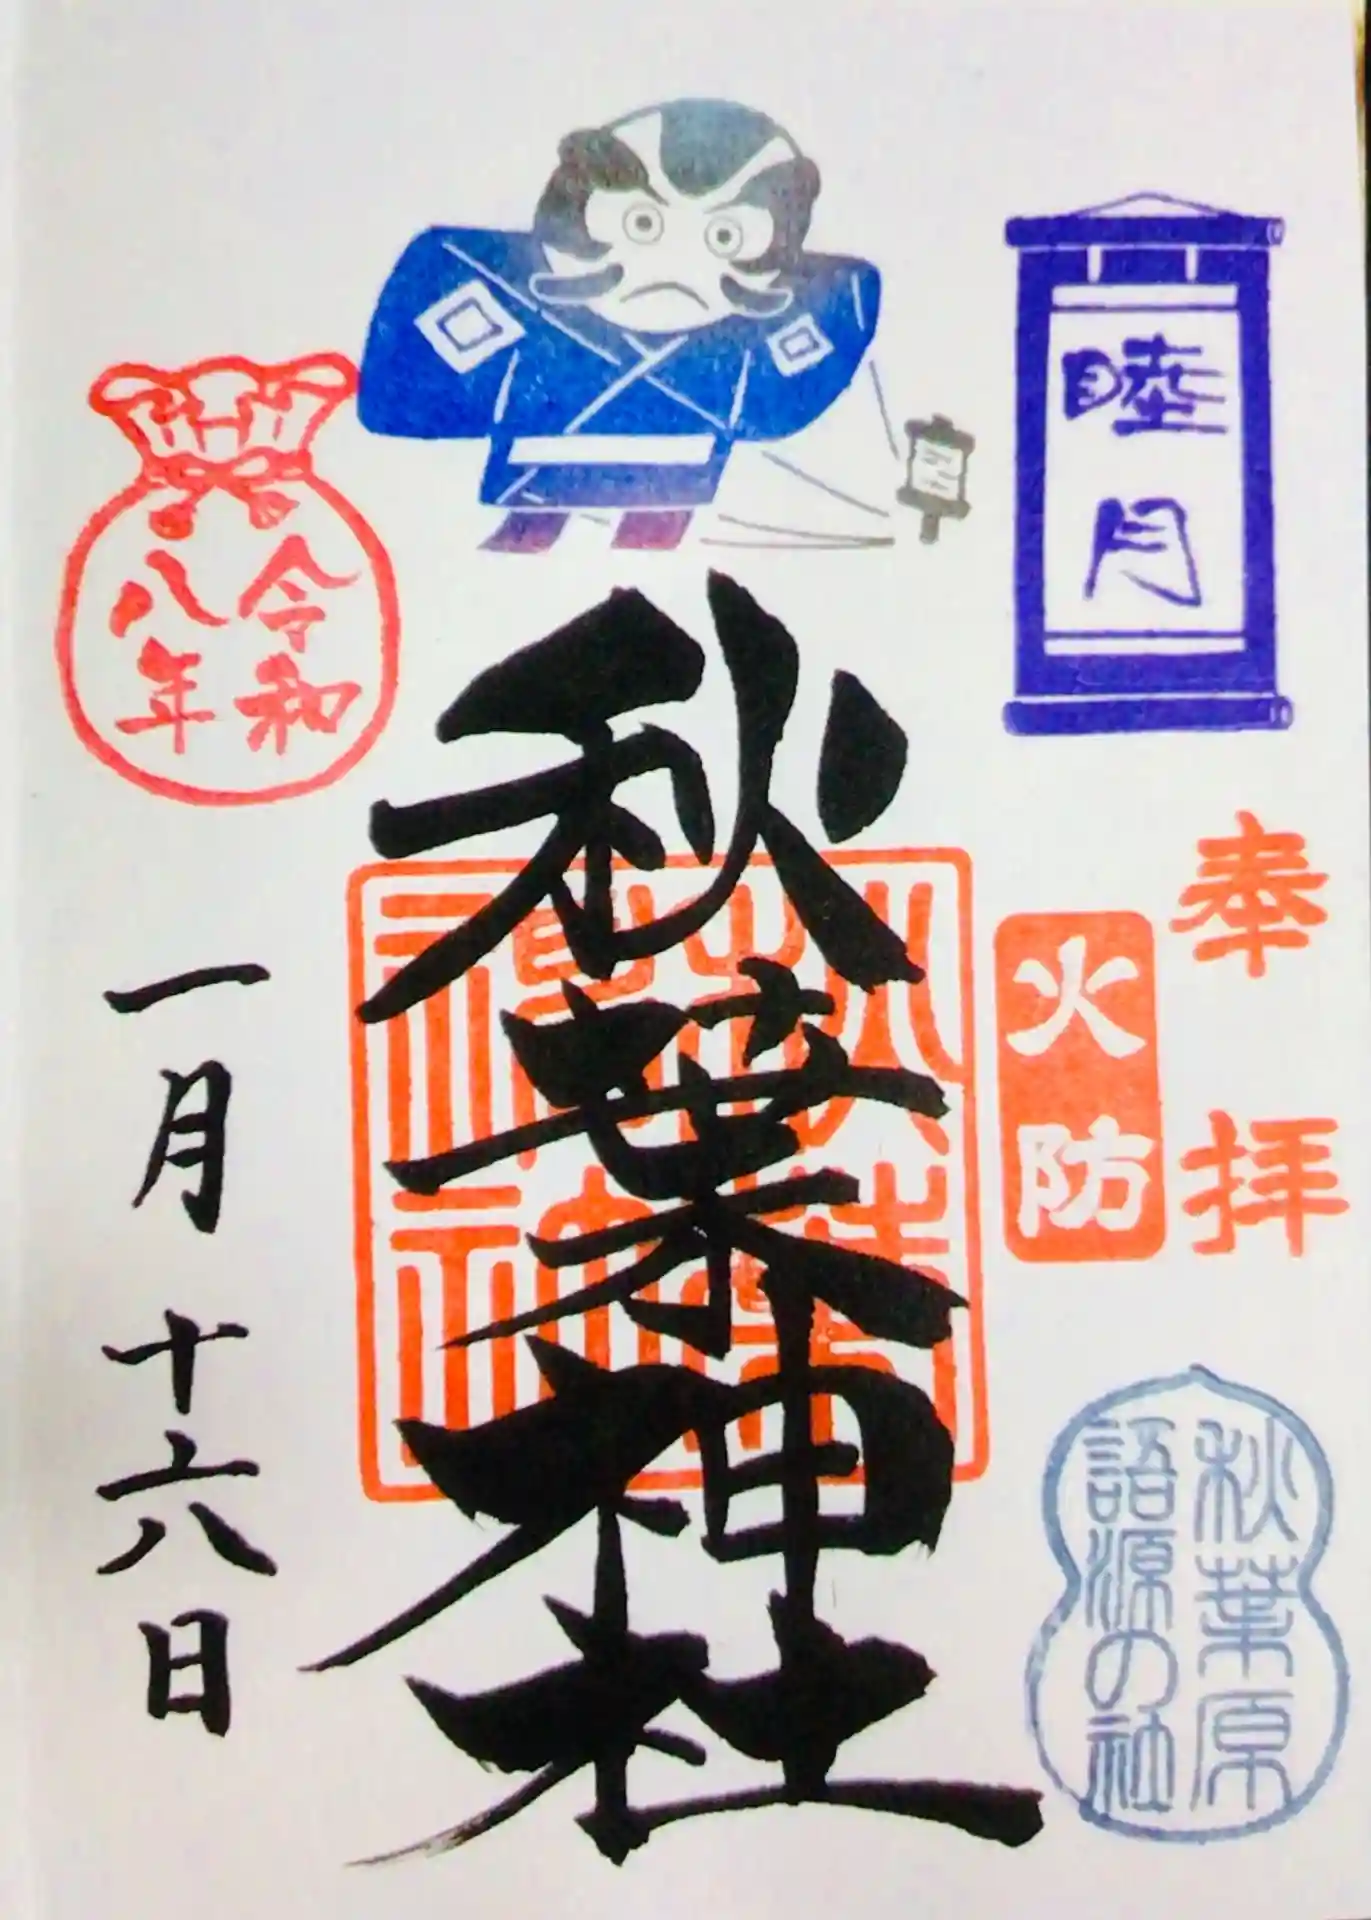 睦月
奉拝
火防
秋葉原
語源の社
秋葉神社
令和
八年
一月十六日